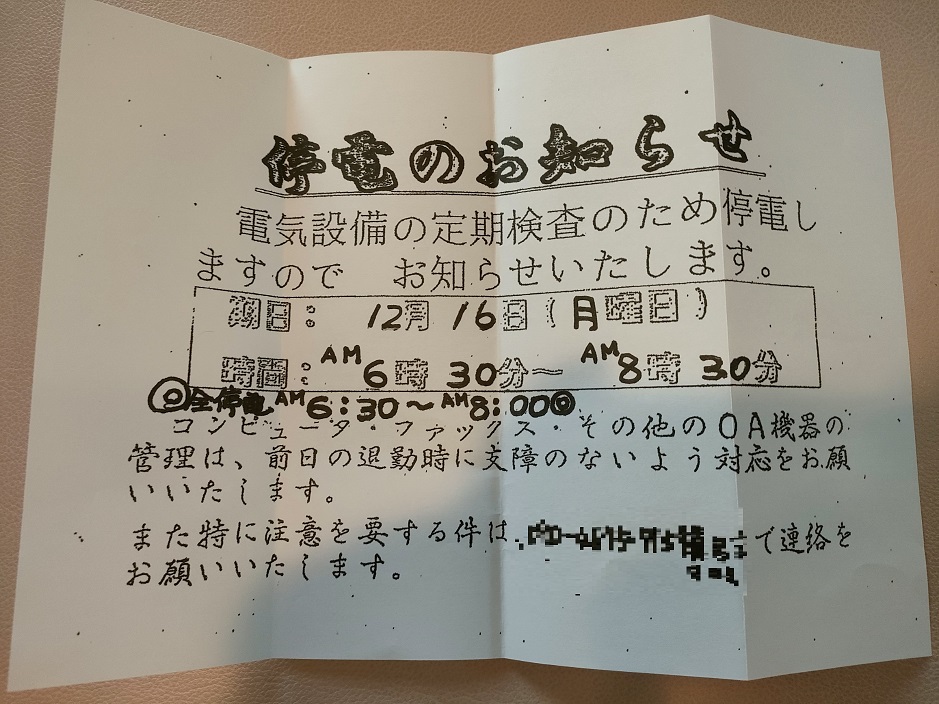 停電のお知らせ
電気設備の定期検査のため停電し
ますので お知らせいたします。
期日： 12月 16日（月曜日）
時間： AM 6時 30分～ AM 8時 30分
◎全停電AM6:30～AM8:00◎
コンピュータ・ファックス・その他のOA機器の
管理は、前日の退勤時に支障のないよう対応をお願
いいたします。
また特に注意を要する件は、で連絡を
お願いいたします。